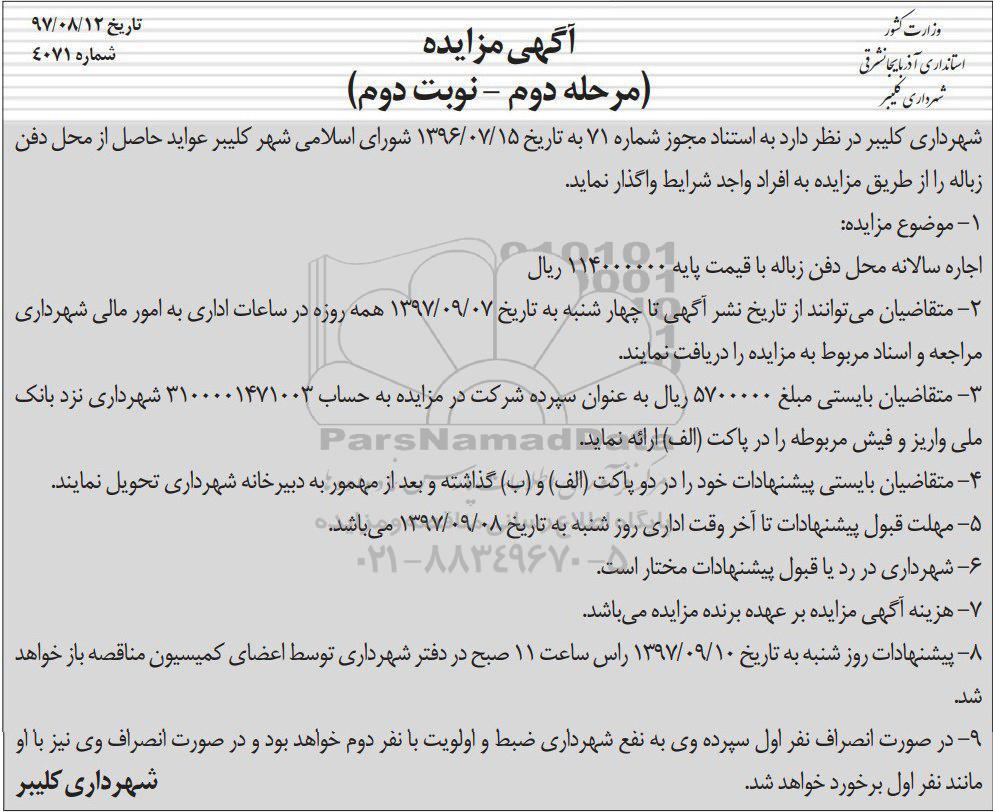 وزارت کشور
استانداری آذربایجانشرقی
شهرداری کلیبر
آگهی مزایده
(مرحله دوم – نوبت دوم)
تاریخ ۹۷/۰۸/۱۲
شماره ٤٠٧١
شهرداری کلیبر در نظر دارد به استناد مجوز شماره ۷۱ به تاریخ ۱۳۹۶/۰۷/۱۵ شورای اسلامی شهر کلیبر عواید حاصل از محل دفن
زباله را از طریق مزایده به افراد واجد شرایط واگذار نماید.
۱- موضوع مزایده:
اجاره سالانه محل دفن زباله با قیمت پایه ۱۱۴۰۰۰۰۰۰ ریال
۲- متقاضیان می‌توانند از تاریخ نشر آگهی تا چهار شنبه به تاریخ ۱۳۹۷/۰۹/۰۷ همه روزه در ساعات اداری به امور مالی شهرداری
مراجعه و اسناد مربوط به مزایده را دریافت نمایند.
۳- متقاضیان بایستی مبلغ ۵۷۰۰۰۰۰ ریال به عنوان سپرده شرکت در مزایده به حساب ۳۱۰۰۰۰۱۴۷۱۰۰۳ شهرداری نزد بانک
ملی واریز و فیش مربوطه را در پاکت (الف) ارائه نماید.
۴- متقاضیان بایستی پیشنهادات خود را در دو پاکت (الف) و (ب) گذاشته و بعد از مهمور به دبیرخانه شهرداری تحویل نمایند.
۵- مهلت قبول پیشنهادات تا آخر وقت اداری روز شنبه به تاریخ ۱۳۹۷/۰۹/۰۸ می‌باشد.
۶- شهرداری در رد یا قبول پیشنهادات مختار است.
۷- هزینه آگهی مزایده بر عهده برنده مزایده می‌باشد.
۸- پیشنهادات روز شنبه به تاریخ ۱۳۹۷/۰۹/۱۰ راس ساعت ۱۱ صبح در دفتر شهرداری توسط اعضای کمیسیون مناقصه باز خواهد
شد.
۹- در صورت انصراف نفر اول سپرده وی به نفع شهرداری ضبط و اولویت با نفر دوم خواهد بود و در صورت انصراف وی نیز با او
مانند نفر اول برخورد خواهد شد.
شهرداری کلیبر
ParsNamadData
پایگاه اطلاع رسانی مناقصه و مزایده
۰۲۱-۸۸۳٤۹۶۷۰-۵